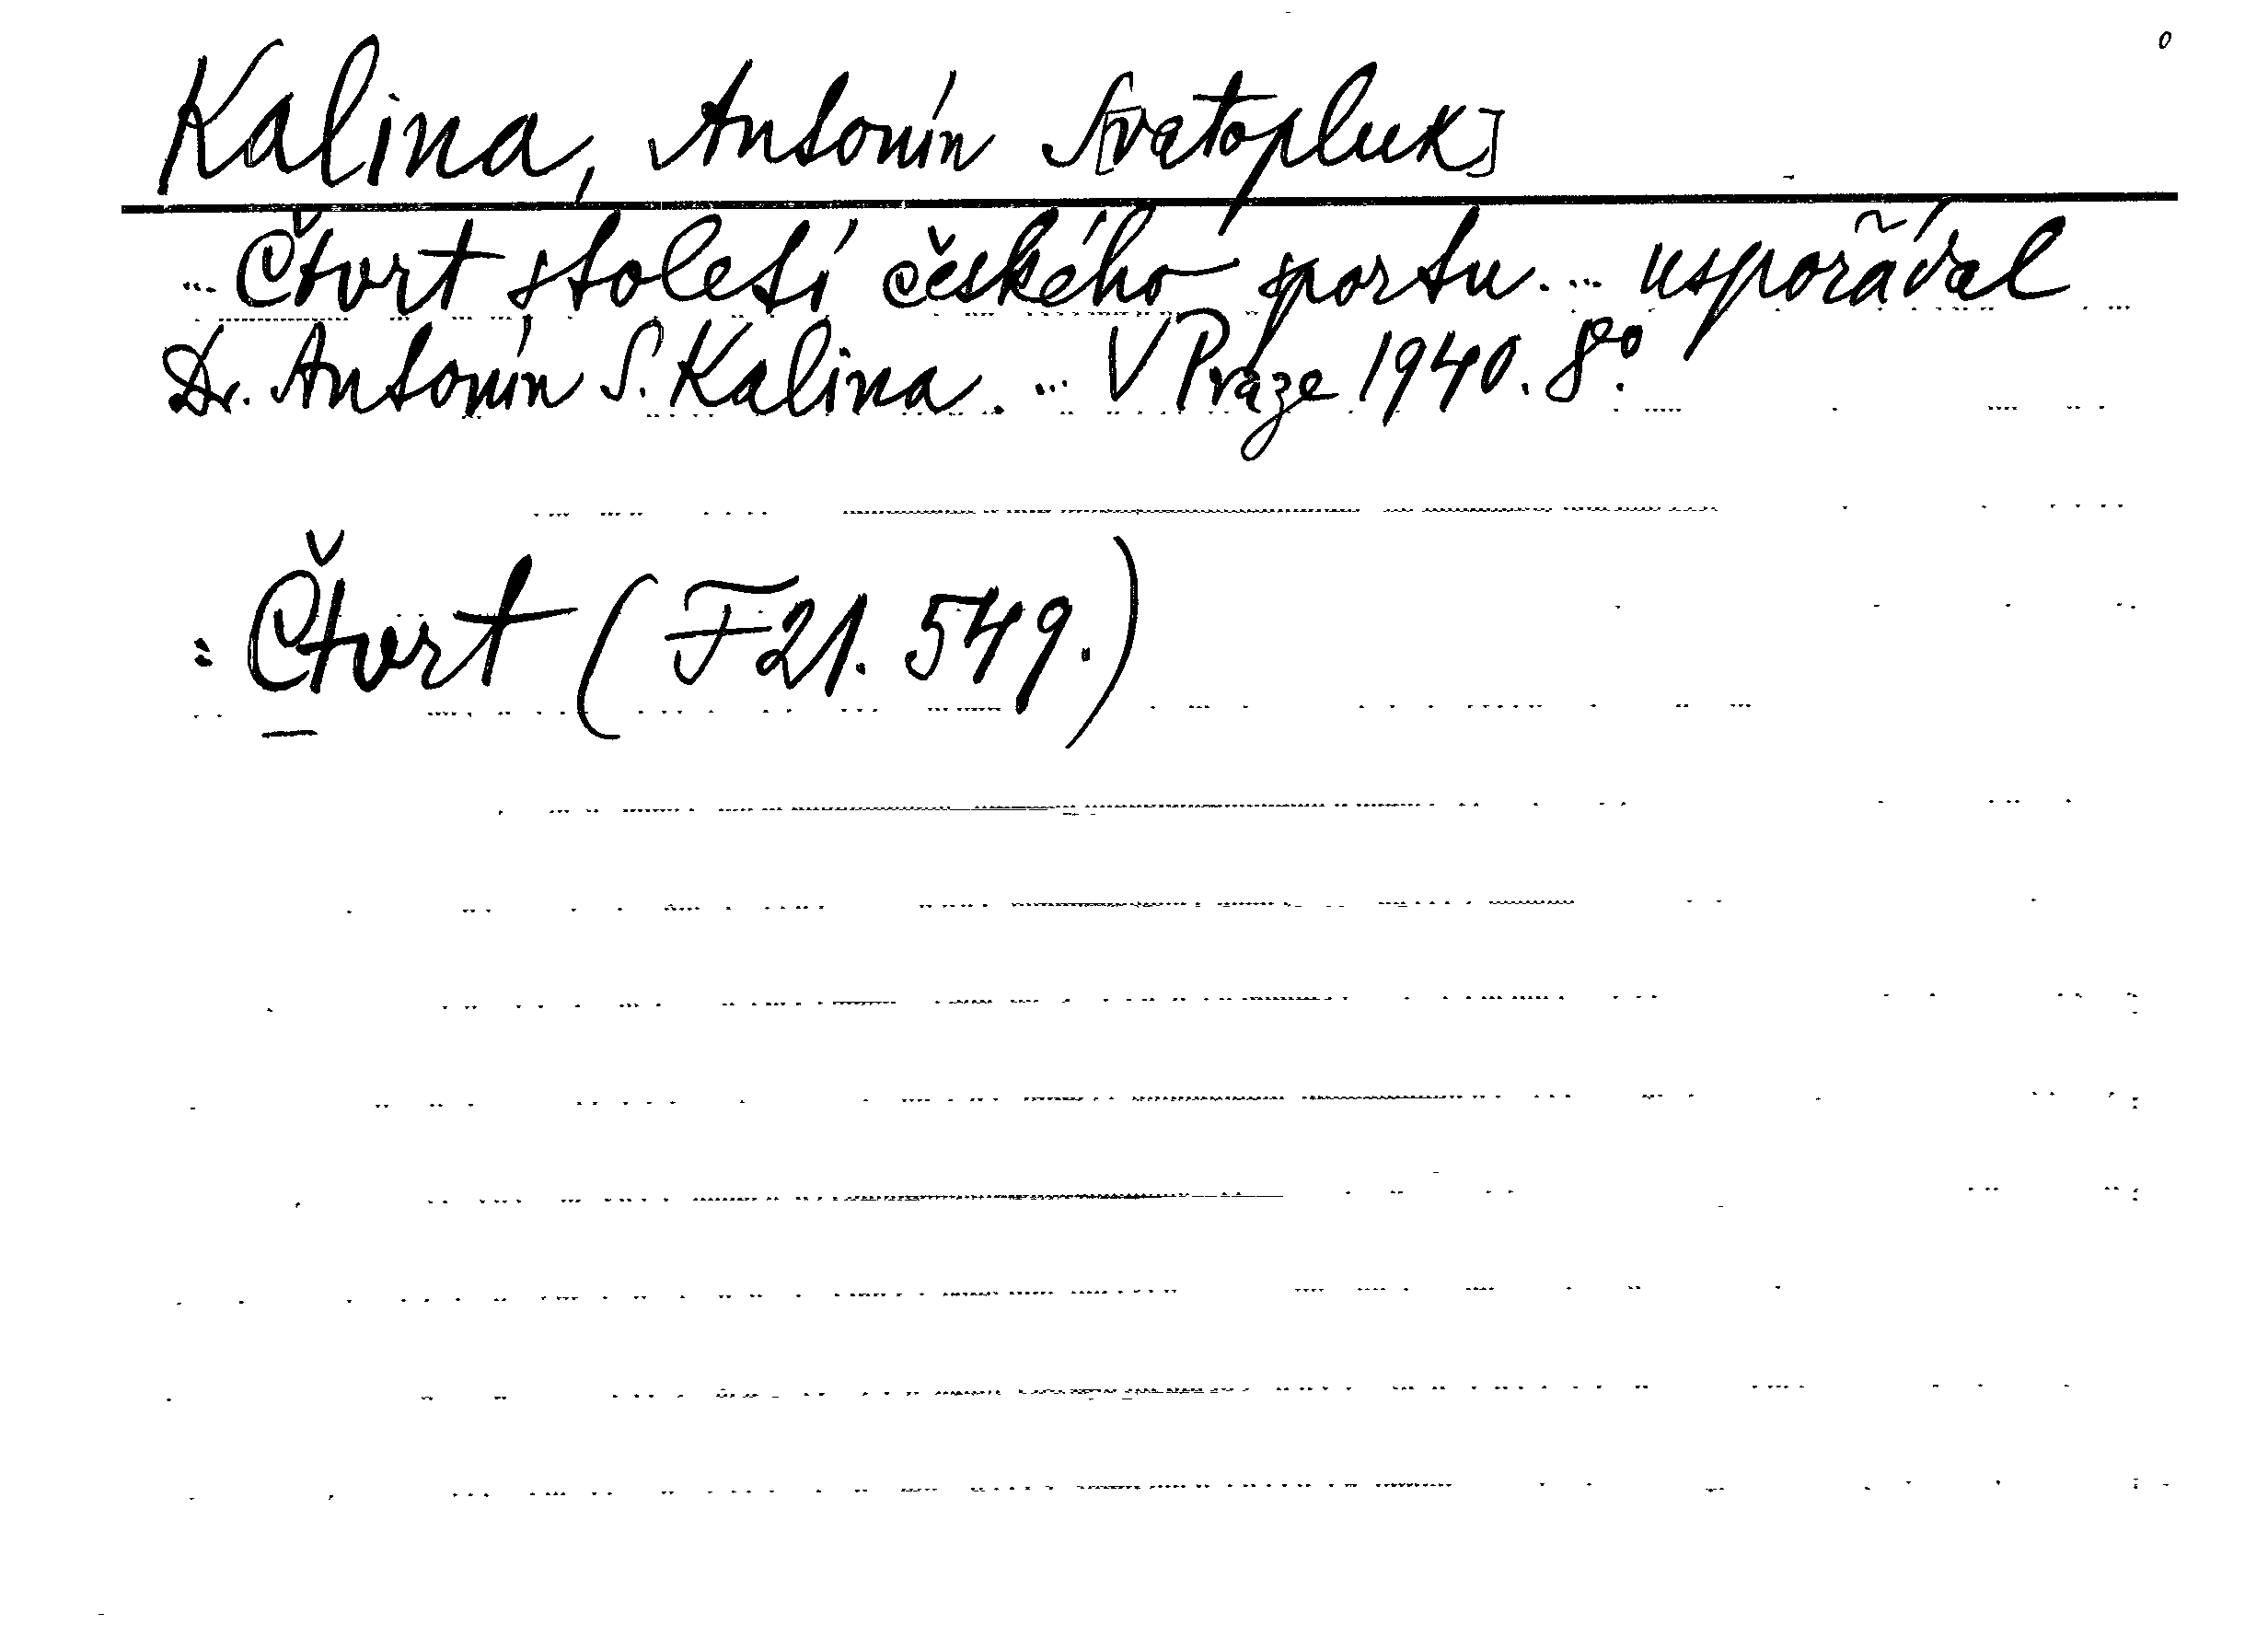 Kalina, Antonín S[vatopluk]
... Čtvrt století českého sportu. ... uspořádal
Dr. Antonín S. Kalina. ... V Praze 1940. 8º.
: Čtvrt (F 21. 549.)